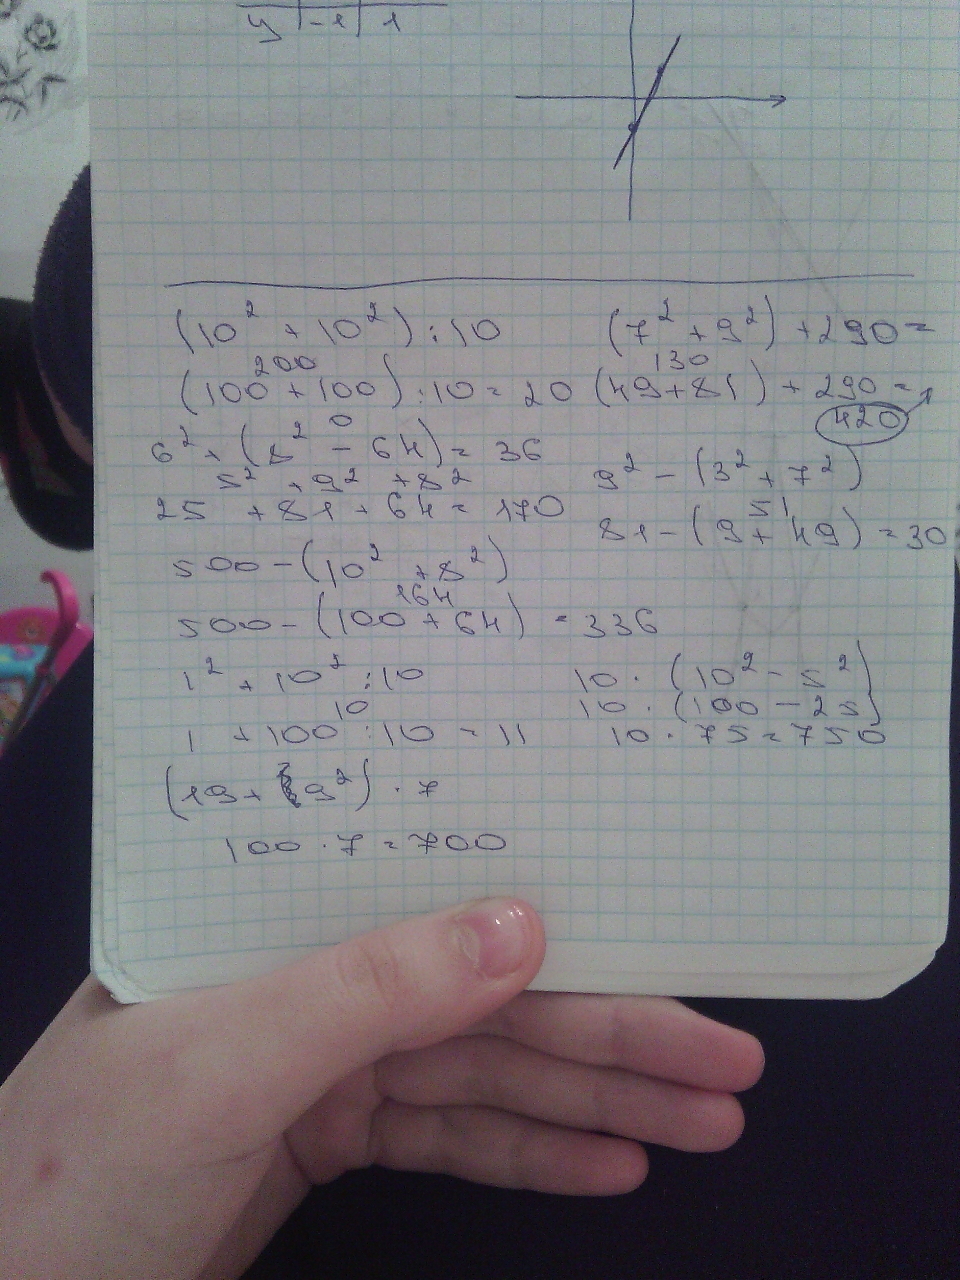 y | -1 | 1
(10² + 10²) : 10
200
(100 + 100) : 10 = 20
0
6² + (8² - 64) = 36
5² + 9² + 8²
25 + 81 + 64 = 170
500 - (10² + 8²)
164
500 - (100 + 64) = 336
1² + 10² : 10
10
1 + 100 : 10 = 11
(19 + 9²) · 7
100 · 7 = 700
(7² + 9²) + 290 =
130
(49 + 81) + 290 =
420
9² - (3² + 7²)
51
81 - (9 + 49) = 30
10 · (10² - 5²)
10 · (100 - 25)
10 · 75 = 750